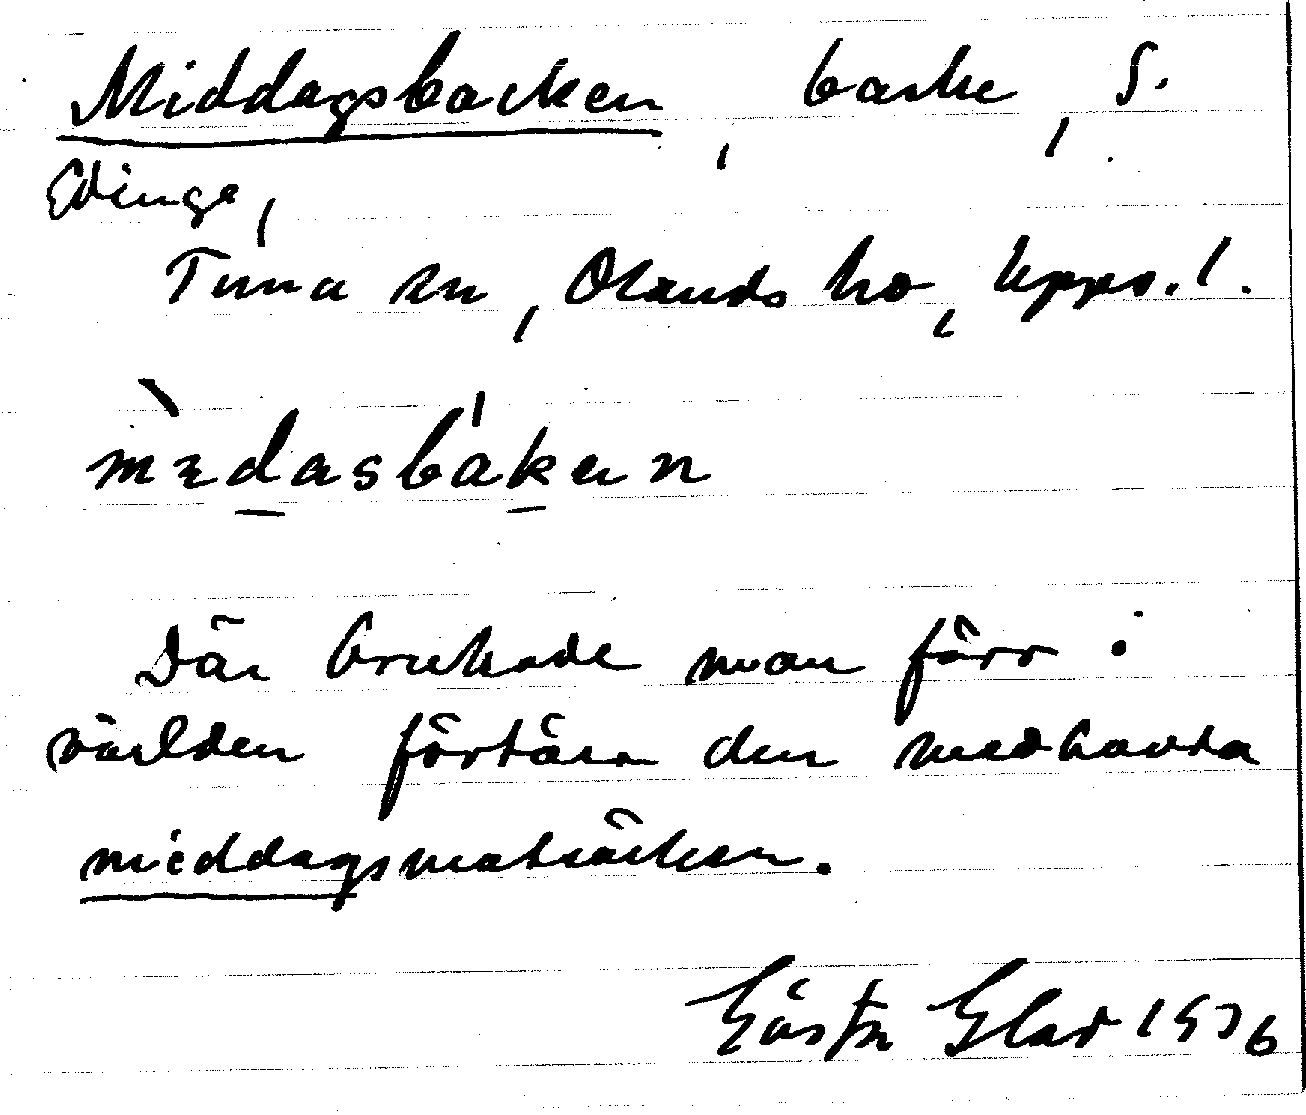 Middagsbacken, backe, S.
Edinge,
Tuna sn, Olands hd, Upps. l.
mèdasbákan
Där brukade man förr i
världen förtära den medhavda
middagsmatsäcken.
Gösta Glad 1936